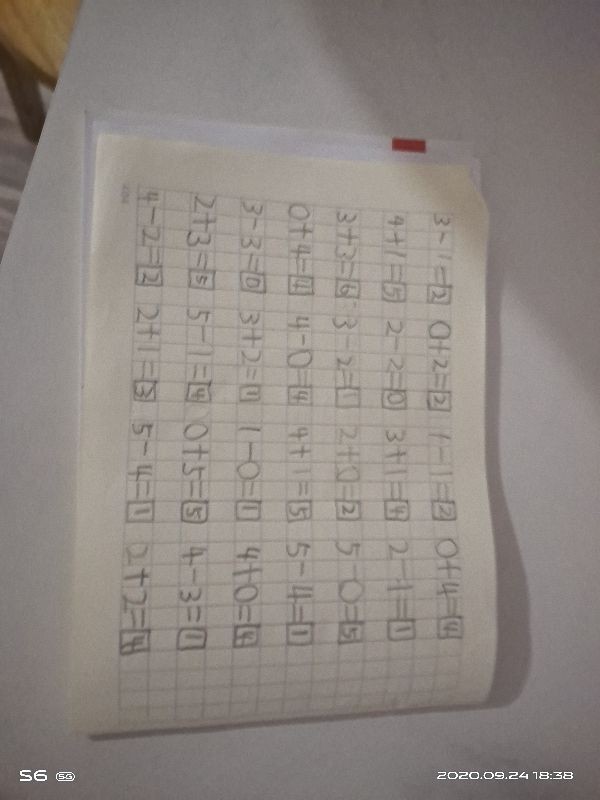 3-1=2 0+2=2 1-1=2 0+4=4
4+1=5 2-2=0 3+1=4 2-1=1
3+3=6 3-2=1 2+0=2 5-0=5
0+4=4 4-0=4 4+1=5 5-4=1
3-3=0 3+2=1 1-0=1 4+0=4
2+3=5 5-1=4 0+5=5 4-3=1
4-2=2 2+1=3 5-4=1 2+2=4
S6 5G
2020.09.24 18:38